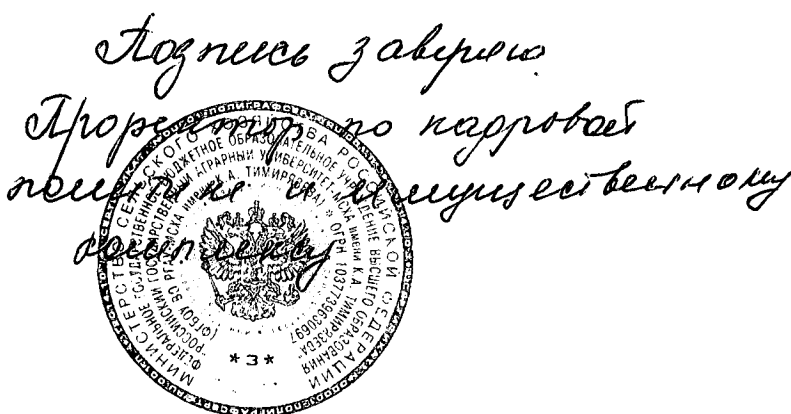 Подпись заверяю
Проректор по кадровой
политике и имущественному
комплексу
МИНИСТЕРСТВО СЕЛЬСКОГО ХОЗЯЙСТВА РОССИЙСКОЙ ФЕДЕРАЦИИ
ФЕДЕРАЛЬНОЕ ГОСУДАРСТВЕННОЕ БЮДЖЕТНОЕ ОБРАЗОВАТЕЛЬНОЕ УЧРЕЖДЕНИЕ ВЫСШЕГО ОБРАЗОВАНИЯ
"РОССИЙСКИЙ ГОСУДАРСТВЕННЫЙ АГРАРНЫЙ УНИВЕРСИТЕТ-МСХА ИМЕНИ К.А. ТИМИРЯЗЕВА"
(ФГБОУ ВО РГАУ-МСХА ИМЕНИ К.А. ТИМИРЯЗЕВА) * ОГРН 1037739630697
*3*